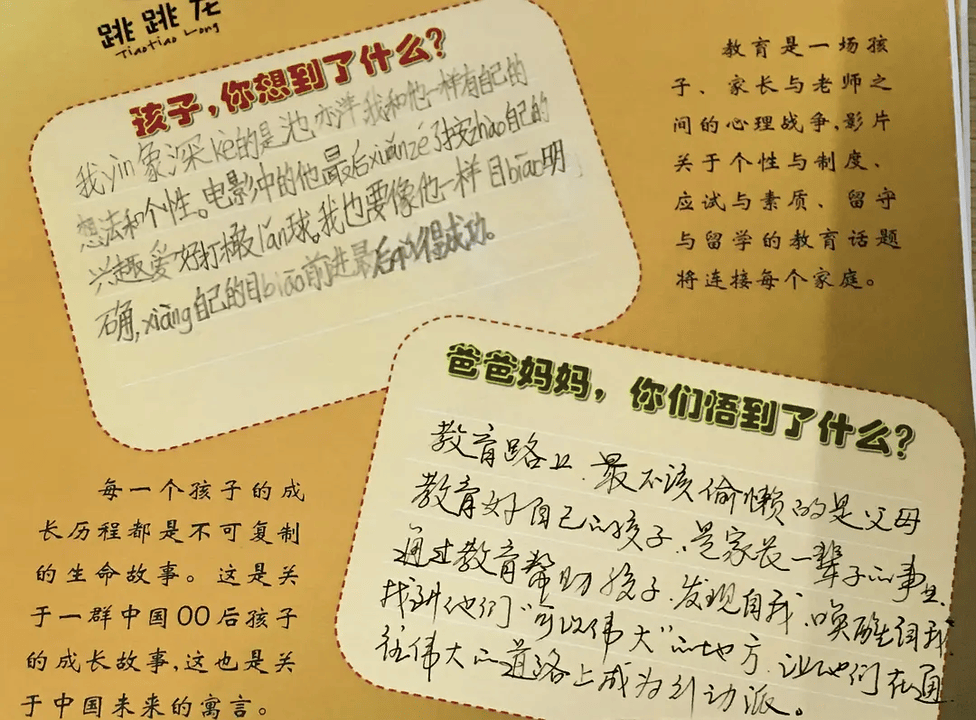 跳跳龙
TiaoTiao Long
孩子,你想到了什么?
我yin象深kè的是池亦洋我和他一样有自己的
想法和个性。电影中的他最后xuǎnzé了按zhào自己的
兴趣爱好打橄lǎn球。我也要像他一样目biāo明
确,xiàng自己的目biāo前进最后得成功。
教育是一场孩
子、家长与老师之
间的心理战争,影片
关于个性与制度、
应试与素质、留守
与留学的教育话题
将连接每个家庭。
爸爸妈妈,你们悟到了什么?
教育路上.最不该偷懒的是父母
教育好自己的孩子、是家长一辈子的事业
通过教育帮助孩子.发现自我.唤醒自我
找到他们“可以伟大”的地方.让他们在通
往伟大的道路上成为行动派。
每一个孩子的成
长历程都是不可复制
的生命故事。这是关
于一群中国00后孩子
的成长故事,这也是关
于中国未来的寓言。